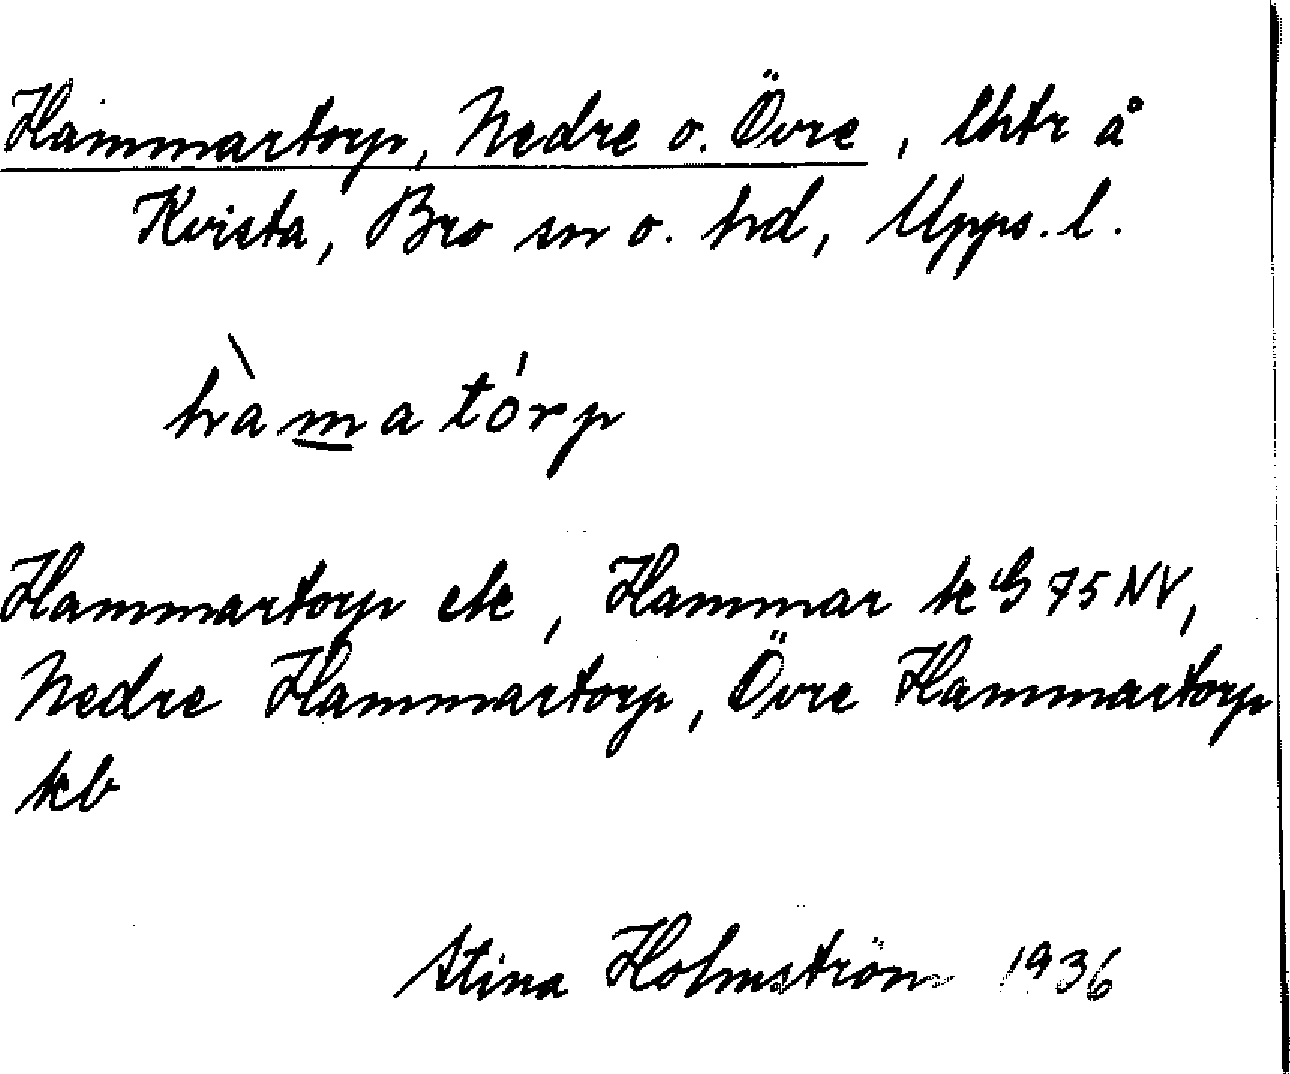 Hammartorp, Nedre o. Övre, lhtr å
Kvista, Bro sn o. hd, Upps. l.
hàmatórp
Hammartorp ek, Hammar k G 75 NV,
Nedre Hammartorp, Övre Hammartorp
kb
Stina Holmström 1936